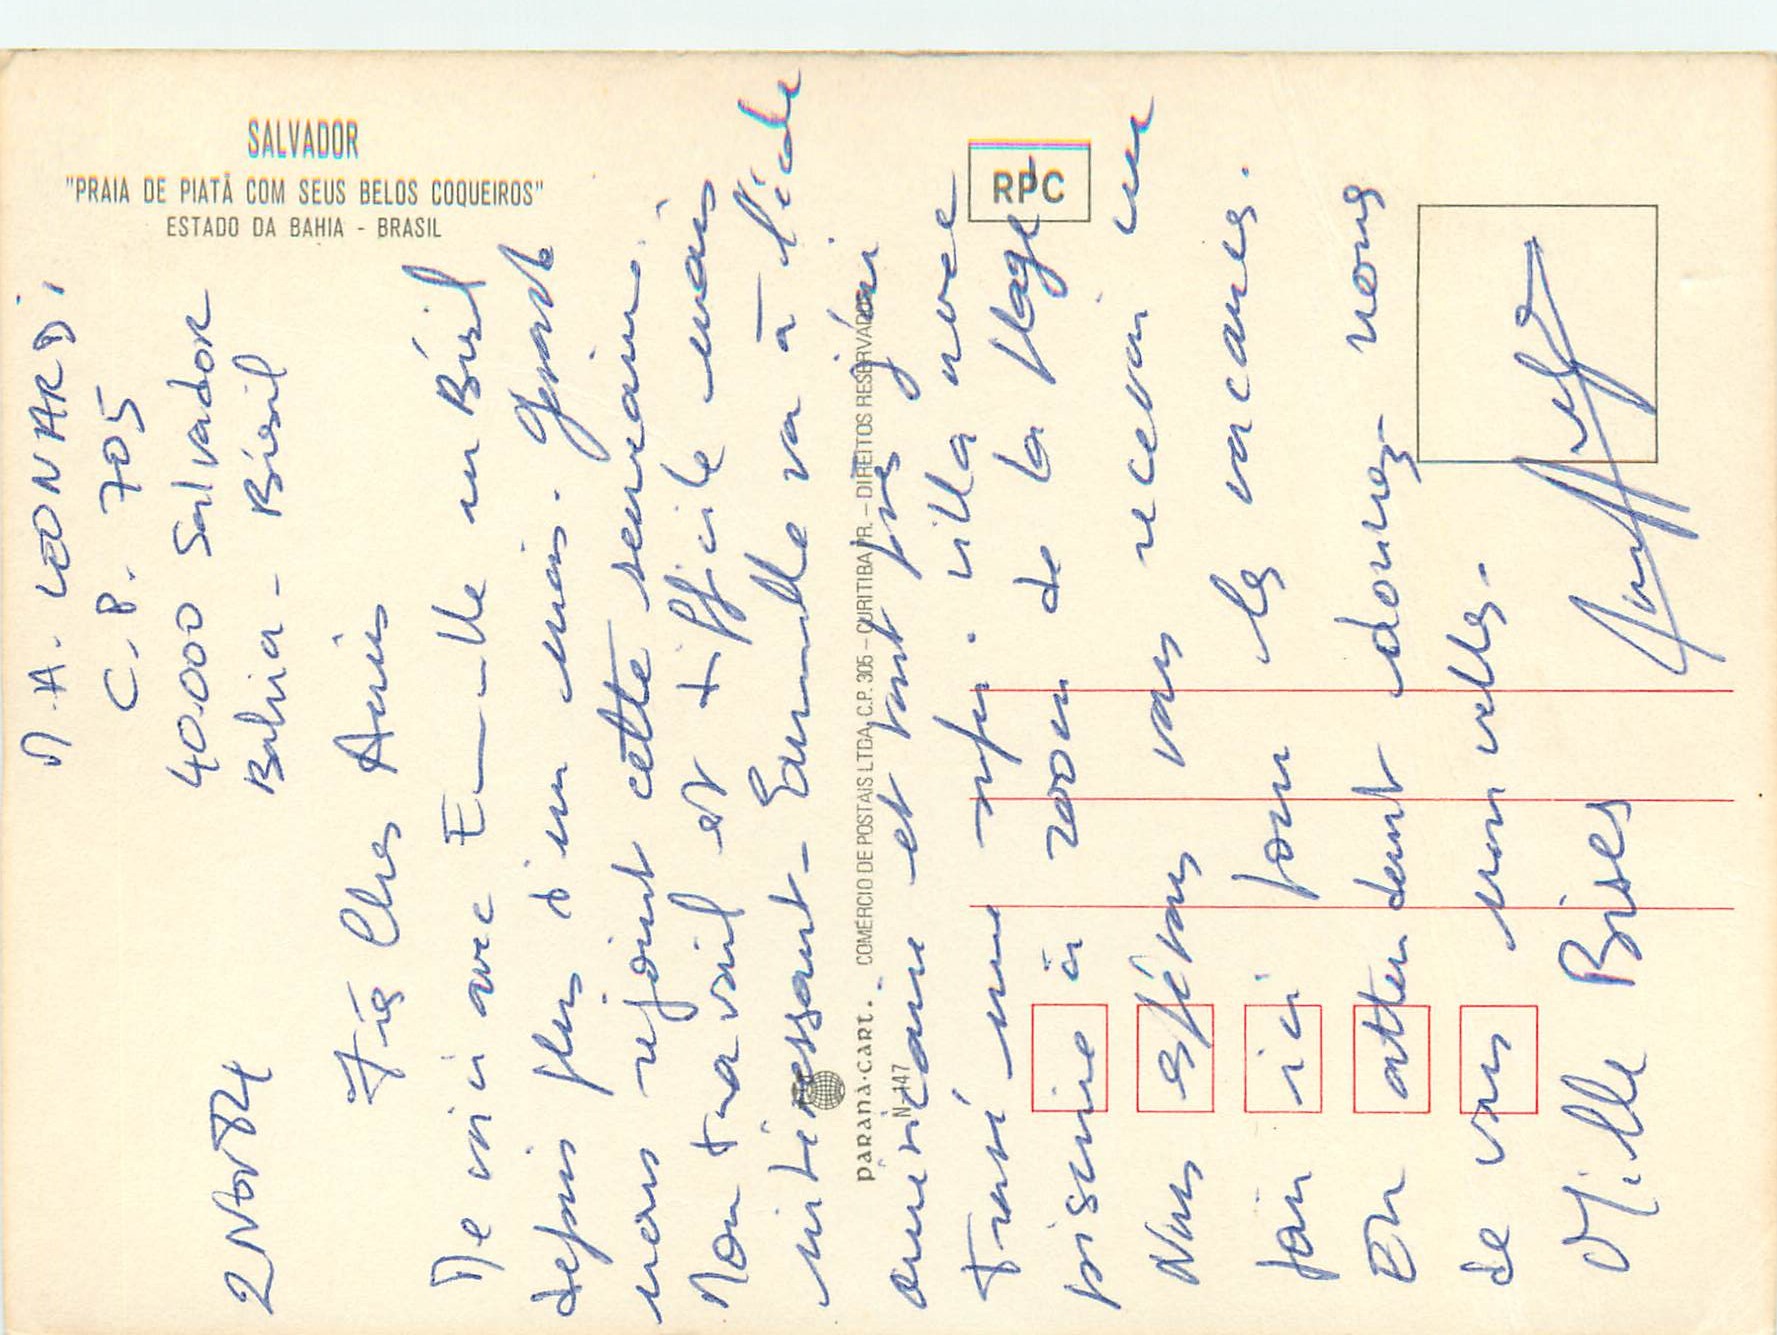 SALVADOR
"PRAIA DE PIATÃ COM SEUS BELOS COQUEIROS"
ESTADO DA BAHIA - BRASIL
RPC
PARANÁ-CART. - COMÉRCIO DE POSTAIS LTDA, C.P. 305 - CURITIBA/PR. - DIREITOS RESERVADOS
N.º 147
M. A. LEONARDI
C.P. 705
40.000 Salvador
Bahia - Brésil
2 Nov 84
Très Chers Amis
Me voici avec au Brésil
depuis plus d'un mois.
nous rejoint cette semaine.
Mon travail est difficile mais
intéressant - va à l'école
américaine et tout près j'ai
trouvé une super villa avec
piscine à 200m de la plage
Nous espérons vous recevoir un
jour ici pour les vacances.
En attendant donnez-nous
de vos nouvelles.
Mille Bises